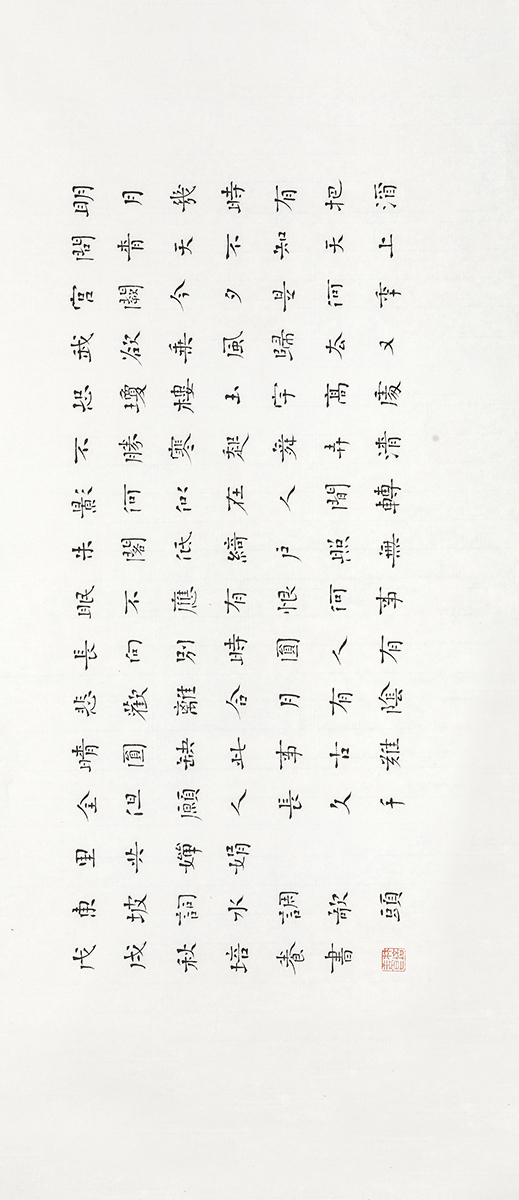 明月幾時有把酒
問青天不知天上
宮闕今夕是何年
我欲乘風歸去又
恐瓊樓玉宇高處
不勝寒起舞弄清
影何似在人間轉
朱閣低綺戶照無
眠不應有恨何事
長向別時圓人有
悲歡離合月有陰
晴圓缺此事古難
全但願人長久千
里共嬋娟
東坡詞水調歌頭
戊戌秋培養書